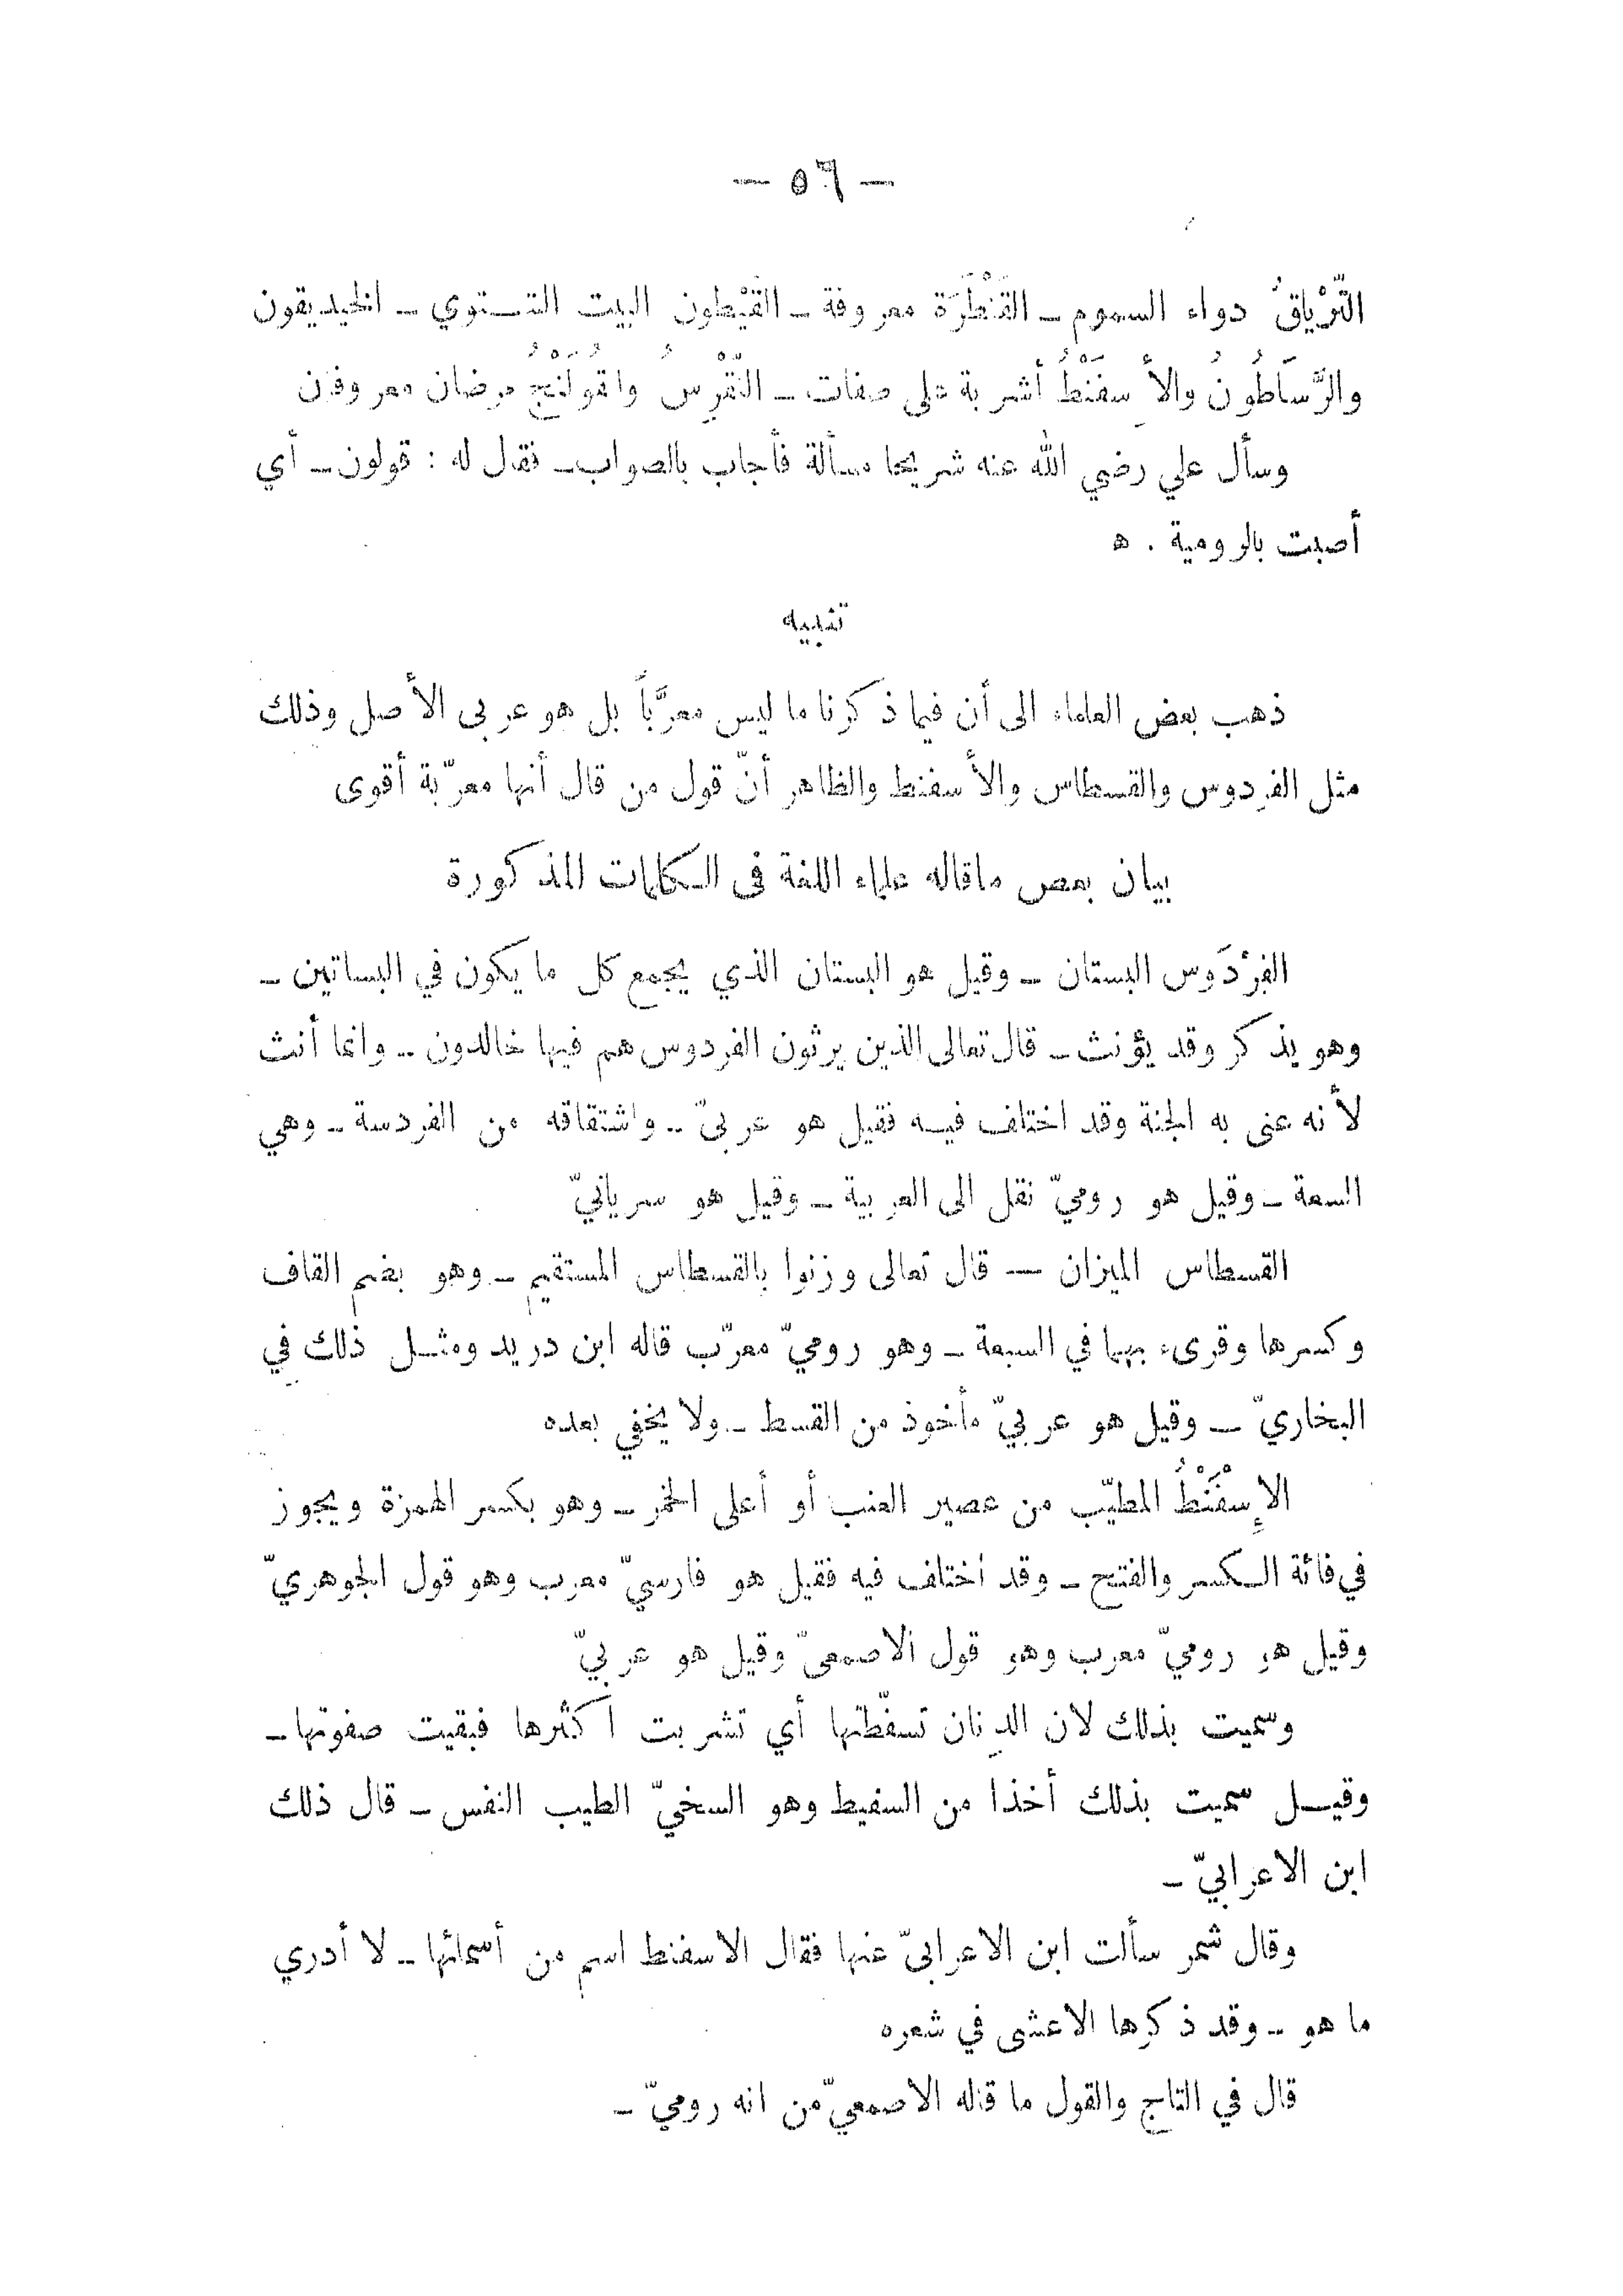 — ٥٦ —
التِّرْياقُ دواء السموم ـ القَنْطَرَة معروفة ـ القَيْطون البيت الشتوي ـ الخيديقون
والرَّسَاطُونُ والأَسِفَنْطُ أشربة على صفات ـ النِّقْرِسُ والقُولَنْجُ مرضان معروفان
وسأل علي رضي الله عنه شريحا مسألة فأجاب بالصواب ـ فقال له : قولون ـ أي
أصبت بالرومية . ه
تنبيه
ذهب بعض العلماء الى أن فيما ذكرنا ما ليس معرَّباً بل هو عربى الأصل وذلك
مثل الفردوس والقسطاس والأسفنط والظاهر أنّ قول من قال أنها معرّبة أقوى
بيان بعض ماقاله علماء اللغة فى الكلمات المذكورة
الفِرْدَوس البستان ـ وقيل هو البستان الذي يجمع كل ما يكون في البساتين ـ
وهو يذكر وقد يؤنث ـ قال تعالى الذين يرثون الفردوس هم فيها خالدون ـ وانما أنث
لأنه عنى به الجنة وقد اختلف فيه فقيل هو عربىّ ـ واشتقاقه من الفردسة ـ وهي
السعة ـ وقيل هو روميّ نقل الى العربية ـ وقيل هو سريانيّ
القسطاس الميزان — قال تعالى وزنوا بالقسطاس المستقيم ـ وهو بضم القاف
وكسرها وقرىء بهما في السبعة ـ وهو روميّ معرّب قاله ابن دريد ومثل ذلك في
البخاريّ ـ وقيل هو عربيّ مأخوذ من القسط ـ ولا يخفي بعده
الإِسْفَنْطُ المطيّب من عصير العنب أو أعلى الخمر ـ وهو بكسر الهمزة ويجوز
في فائة الكسر والفتح ـ وقد اختلف فيه فقيل هو فارسيّ معرب وهو قول الجوهريّ
وقيل هو روميّ معرب وهو قول الاصمعىّ وقيل هو عربيّ
وسميت بذلك لان الدِنان تسفّطتها أي تشربت اكثرها فبقيت صفوتها ـ
وقيل سميت بذلك أخذا من السفيط وهو السخيّ الطيب النفس ـ قال ذلك
ابن الاعرابيّ ـ
وقال شمر سألت ابن الاعرابىّ عنها فقال الاسفنط اسم من أسمائها ـ لا أدري
ما هو ـ وقد ذكرها الاعشى في شعره
قال في التاج والقول ما قاله الاصمعيّ من انه روميّ ـ